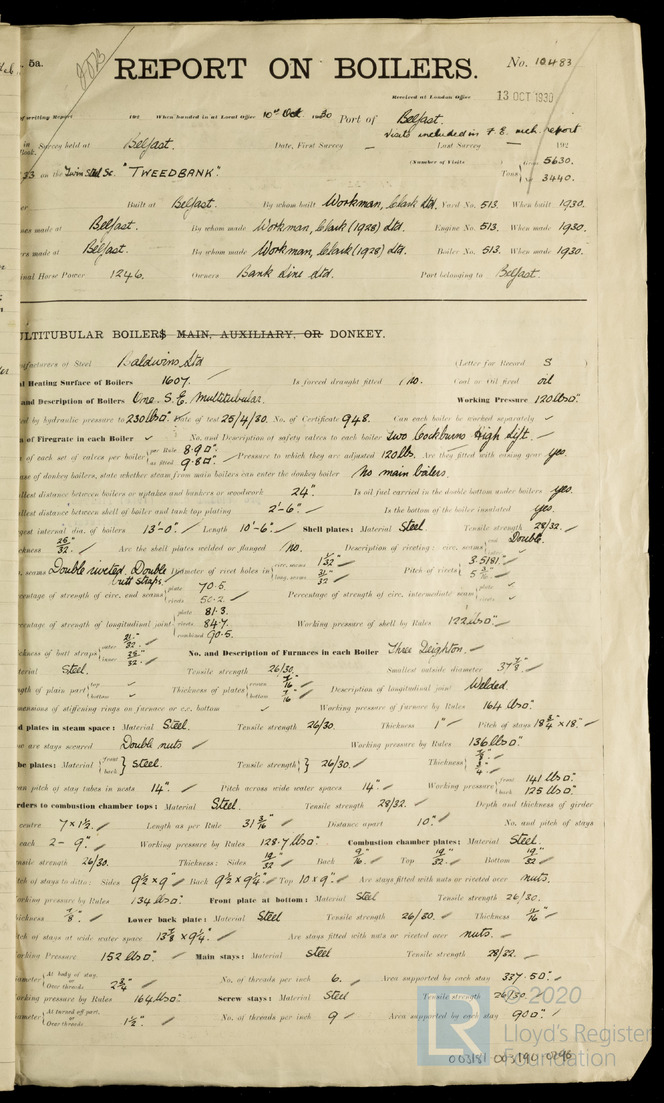 5a.
REPORT ON BOILERS.
No. 10483
Received at London Office 13 OCT 1930
of writing Report 192 When handed in at Local Office 10th Oct. 1930 Port of Belfast.
Survey held at Belfast. Date, First Survey — Last Survey — 192
Visits included in F.E. mch. report
(Number of Visits
on the Twin Steel Sc. "TWEEDBANK". Tons Gross 5630.
Net 3440.
Built at Belfast. By whom built Workman, Clark Ltd. Yard No. 513. When built 1930.
made at Belfast. By whom made Workman, Clark (1928) Ltd. Engine No. 513. When made 1930.
made at Belfast. By whom made Workman, Clark (1928) Ltd. Boiler No. 513. When made 1930.
Horse Power 1246. Owners Bank Line Ltd. Port belonging to Belfast.
MULTITUBULAR BOILERS MAIN, AUXILIARY, OR DONKEY.
of Steel Baldwins Ltd (Letter for Record S
Heating Surface of Boilers 1607. Is forced draught fitted No. Coal or Oil fired oil
and Description of Boilers One. S. E. Multitubular. Working Pressure 120 lbs □".
by hydraulic pressure to 230 lbs □". Date of test 25/4/30. No. of Certificate 948. Can each boiler be worked separately ✓
of Firegrate in each Boiler ✓ No. and Description of safety valves to each boiler Two Cockburns High Lift.
of each set of valves per boiler per Rule 8.9 □". as fitted 9.8 □". Pressure to which they are adjusted 120 lbs. Are they fitted with easing gear yes.
of donkey boilers, state whether steam from main boilers can enter the donkey boiler No main boilers.
distance between boilers or uptakes and bunkers or woodwork 24". Is oil fuel carried in the double bottom under boilers yes.
distance between shell of boiler and tank top plating 2'-6". Is the bottom of the boiler insulated yes.
internal dia. of boilers 13'-0". Length 10'-6". Shell plates: Material Steel. Tensile strength 28/32.
Are the shell plates welded or flanged No. Description of riveting: circ. seams end Double.
seams Double riveted, Double butt straps. Diameter of rivet holes in circ. seams long. seams Pitch of rivets 3.5181.
percentage of strength of circ. end seams plate 70.5. rivets 50.2. Percentage of strength of circ. intermediate seam plate rivets
percentage of strength of longitudinal joint plate 81.3. rivets 84.7. combined 90.5. Working pressure of shell by Rules 122 lbs □".
of butt straps outer inner No. and Description of Furnaces in each Boiler Three Deighton.
Material Steel. Tensile strength 26/30. Smallest outside diameter 37 7/8".
of plain part top bottom Thickness of plates crown 7/16 bottom 7/16 Description of longitudinal joint Welded.
dimensions of stiffening rings on furnace or c.c. bottom ✓ Working pressure of furnace by Rules 164 lbs □".
plates in steam space: Material Steel. Tensile strength 26/30. Thickness 1" Pitch of stays 18 3/4" × 18".
are stays secured Double nuts Working pressure by Rules 136 lbs □".
plates: Material front back Steel. Tensile strength 26/30. Thickness 7/8" 3/4"
pitch of stay tubes in nests 14". Pitch across wide water spaces 14". Working pressure front 141 lbs □". back 125 lbs □".
Girders to combustion chamber tops: Material Steel. Tensile strength 28/32. Depth and thickness of girder
centre 7 × 1 1/2. Length as per Rule 31 3/16" Distance apart 10". No. and pitch of stays
each 2 - 9". Working pressure by Rules 128.7 lbs □". Combustion chamber plates: Material Steel.
Tensile strength 26/30. Thickness: Sides 19/32" Back 9/16" Top 19/32" Bottom 19/32"
Pitch of stays to ditto: Sides 9 1/2 × 9" Back 9 1/2" × 9 1/4" Top 10 × 9". Are stays fitted with nuts or riveted over nuts.
Working pressure by Rules 134 lbs □". Front plate at bottom: Material Steel Tensile strength 26/30.
Thickness 7/8". Lower back plate: Material Steel Tensile strength 26/30. Thickness
Pitch of stays at wide water space 13 7/8 × 9 1/4". Are stays fitted with nuts or riveted over nuts.
Working Pressure 152 lbs □". Main stays: Material Steel Tensile strength 28/32.
Diameter At body of stay, or Over threads 2 3/4" No. of threads per inch 6. Area supported by each stay 337.5 □".
Working pressure by Rules 164 lbs □". Screw stays: Material Steel Tensile strength 26/30.
Diameter At turned off part, or Over threads 1 1/2". No. of threads per inch 9 Area supported by each stay 90 □".
© 2020
LR
Lloyd's Register
Foundation
003181-003190-0296